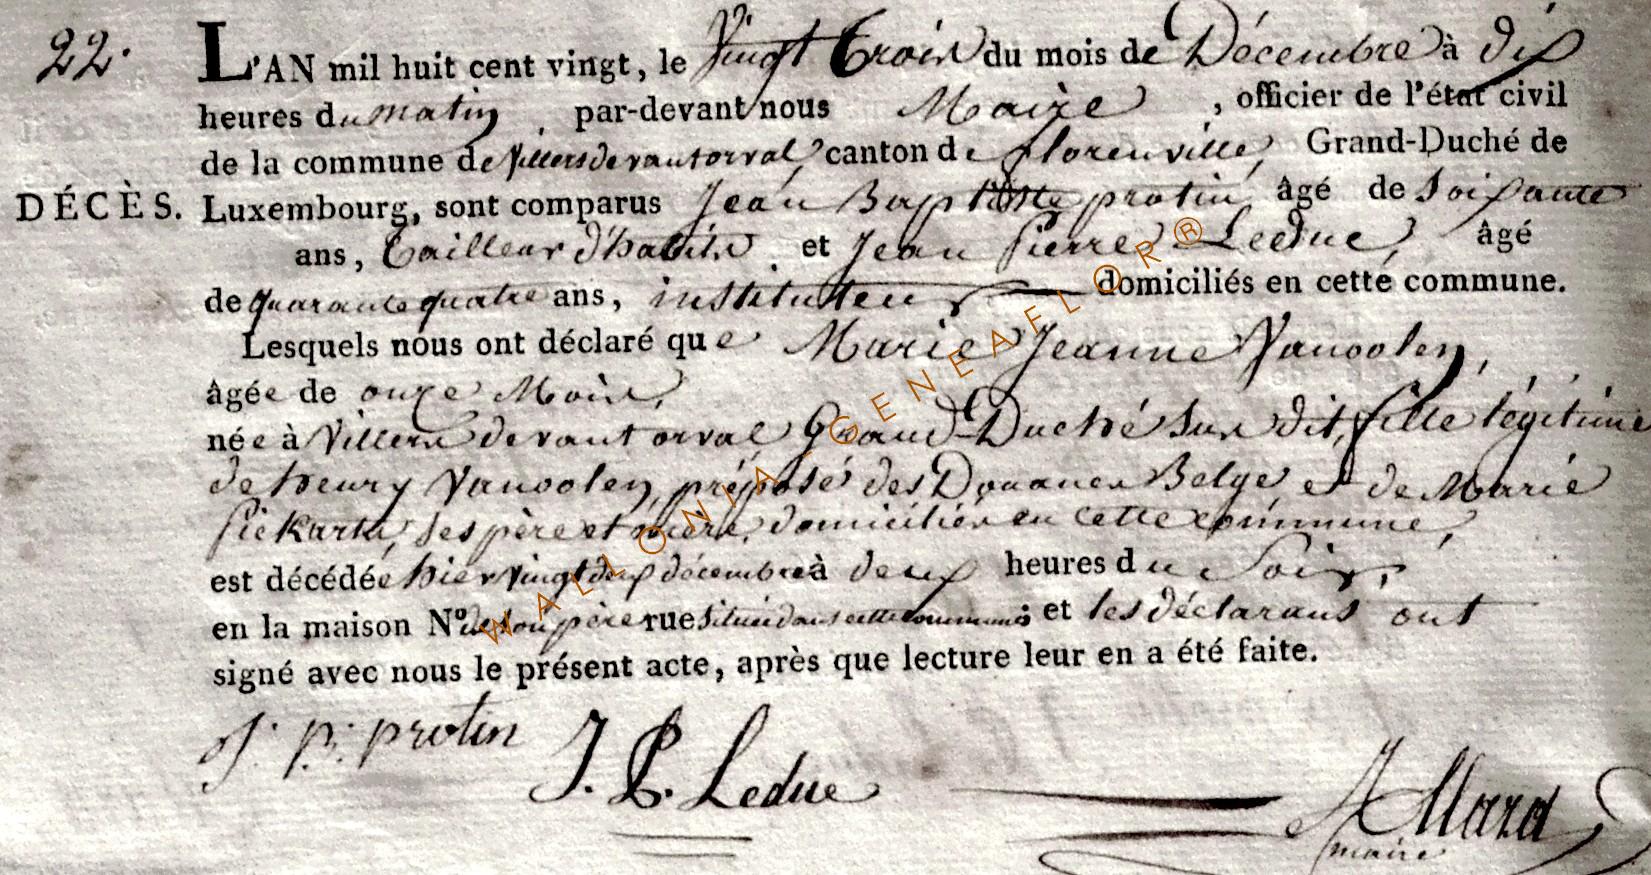 22.
L'AN mil huit cent vingt, le Vingt Trois du mois de Décembre à dix
heures du matin, par-devant nous Maire, officier de l'état civil
de la commune de Villers devant orval, canton de florenville, Grand-Duché de
DÉCÈS. Luxembourg, sont comparus Jean Baptiste protin, âgé de soixante
ans, Tailleur d'habits et Jean Pierre Leduc, âgé
de quarante quatre ans, instituteur domiciliés en cette commune.
Lesquels nous ont déclaré que Marie Jeanne Vanoolen,
âgée de onze Mois,
née à Villers devant orval Grand-Duché sus dit, fille légitime
de henry Vanoolen, préposé des Douanes Belge, et de Marie
Pickarts, ses père et mère, domiciliés en cette commune,
est décédée hier vingt deux décembre à deux heures du Soir,
en la maison N° de son père rue située dans cette commune; et les déclarans ont
signé avec nous le présent acte, après que lecture leur en a été faite.
J. B. protin J. P. Leduc
Allard
maire
WALLONIA-GENEAFLOR®